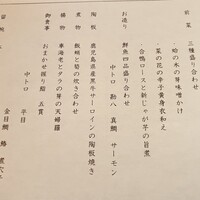 前菜 三種盛り合わせ
蛤の木の芽味噌かけ
菜の花の辛子黄身衣和え
合鴨ロースと新じゃが芋の旨煮
お造り 鮮魚四品盛り合わせ
中トロ 勘八 真鯛 サーモン
陶板 鹿児島県産黒牛サーロインの陶板焼き
煮物 飯蛸と筍の炊き合わせ
揚物 車海老とタラの芽の天婦羅
御食事 おまかせ握り鮨 五貫
中トロ 平目
金目鯛 鯵 煮穴子